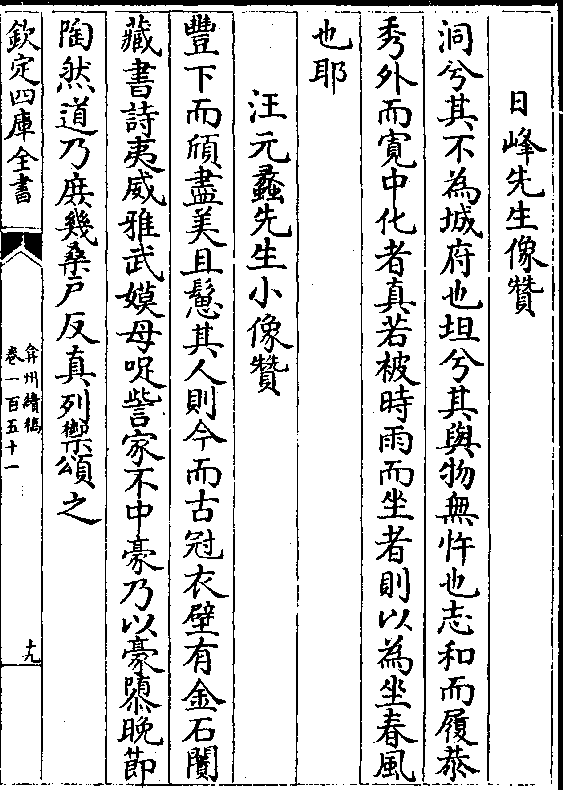 日峰先生像贊
洞兮其不為城府也坦兮其與物無忤也志和而履恭
秀外而寛中化者真若被時雨而坐者則以為坐春風
也耶
汪元蠡先生小像贊
豐下而頎盡美且鬈其人則今而古冠衣壁有金石闠
藏書詩夷威雅武嫫母呢訾家不中豪乃以豪隳晚節
陶然道乃庶幾桑戸反真列禦頌之
欽定四庫全書
弇州續稿
卷一百五十一
十九